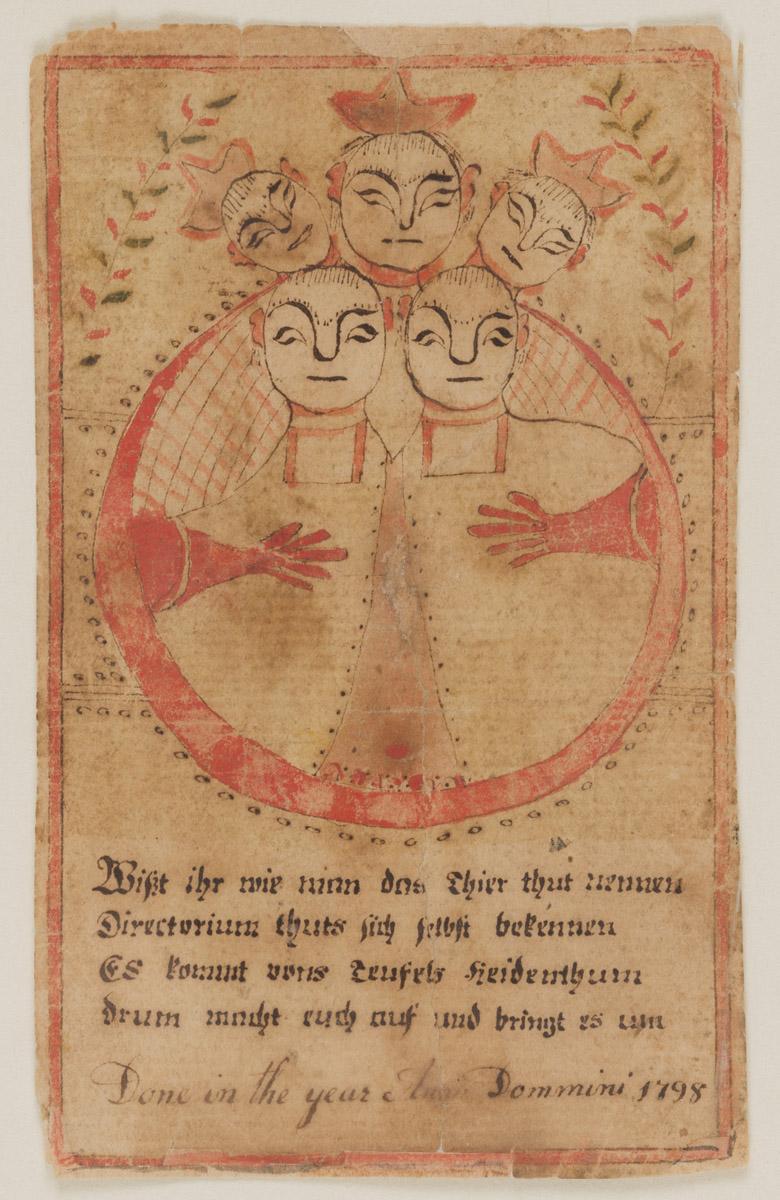 Wißt ihr wie man das Thier thut nennen
Directorium thuts sich selbst bekennen
ES kommt vons Teufels Heidenthum
drum macht euch auf und bringt es um
Done in the year Dommini 1798